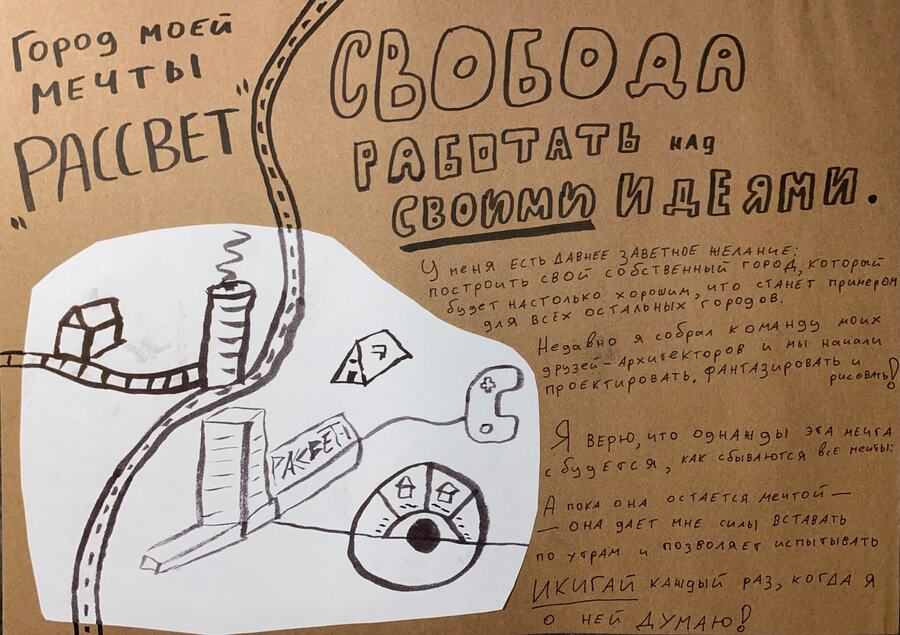 Город моей
мечты
"РАССВЕТ"
СВОБОДА
РАБОТАТЬ над
СВОИМИ ИДЕЯМИ.
У меня есть давнее заветное желание:
построить свой собственный город, который
будет настолько хорошим, что станет примером
для всех остальных городов.
Недавно я собрал команду моих
друзей-архитекторов и мы начали
проектировать, фантазировать и
рисовать!
Я верю, что однажды эта мечта
сбудется, как сбываются все мечты.
А пока она остается мечтой —
— она дает мне силы вставать
по утрам и позволяет испытывать
ИКИГАЙ каждый раз, когда я
о ней ДУМАЮ!
РАССВЕТ-1